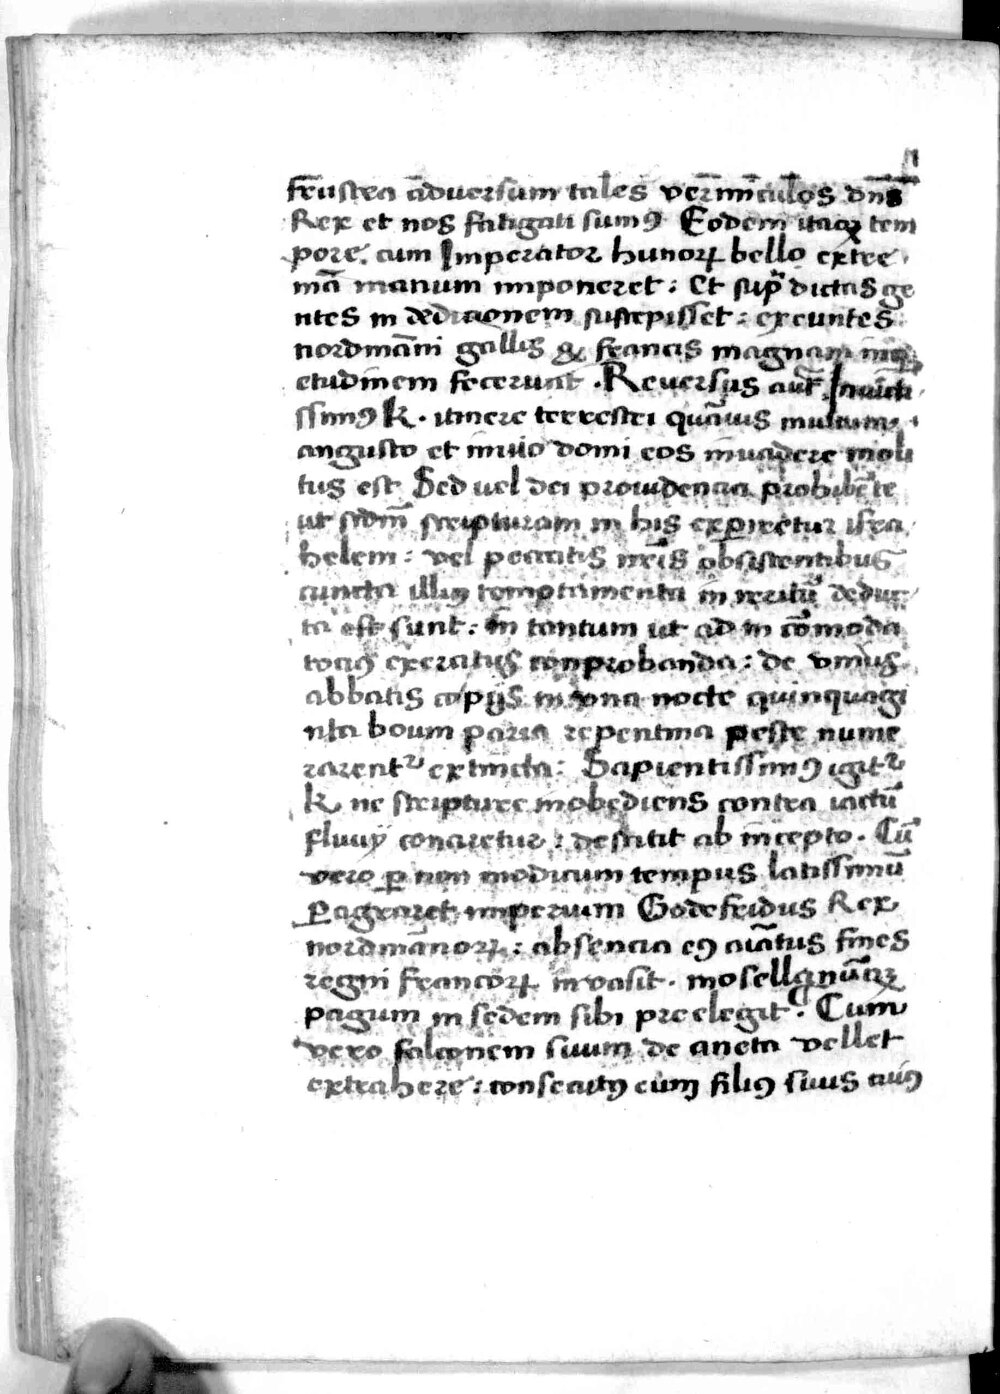 frustra adversum tales vermiculos dn̄s
Rex et nos fatigati sumꝰ Eodem itaqꝫ tem
pore. cum Imperator hunoꝝ bello extre
mā manum imponeret: Et sup̄dictas ge
ntes in dedicionem suscepisset: exeuntes
nordmāni gallis & francis magnam inq̇
etudinem fecerunt. Reversus aut̄ Invicti
ssimꝰ k. itinere terrestri quāvis multum
angusto et invio domi eos invadere moli
tus est Sed vel dei providencia prohibēte
ut scdm̄ scripturam in his exꝑiretur isra
helem: vel peccatis nr̄is obsistentibus
cuncta illiꝰ temptamenta in irritū deduc
ta est sunt: In tantum ut ad in cōmoda
tociꝰ exercitus conprobanda: de unius
abbatis copijs in una nocte quinquagi
nta boum paria repentina peste nume
rarentᷣ extincta: Sapientissimꝰ igitᷣ
k ne scripture inobediens contra ictū
fluvij conaretur: destitit ab incepto. Cū
vero ꝑ non modicum tempus latissimū
ꝑagraret imperium Godefridus Rex
nordmānoꝝ: absencia eꝰ aiātus fines
regni francoꝝ invasit. mosellanūqꝫ
pagum in sedem sibi preelegit. Cum
vero falconem suum de aneta vellet
extrahere: consecutꝰ eum filiꝰ suus cuiꝰ